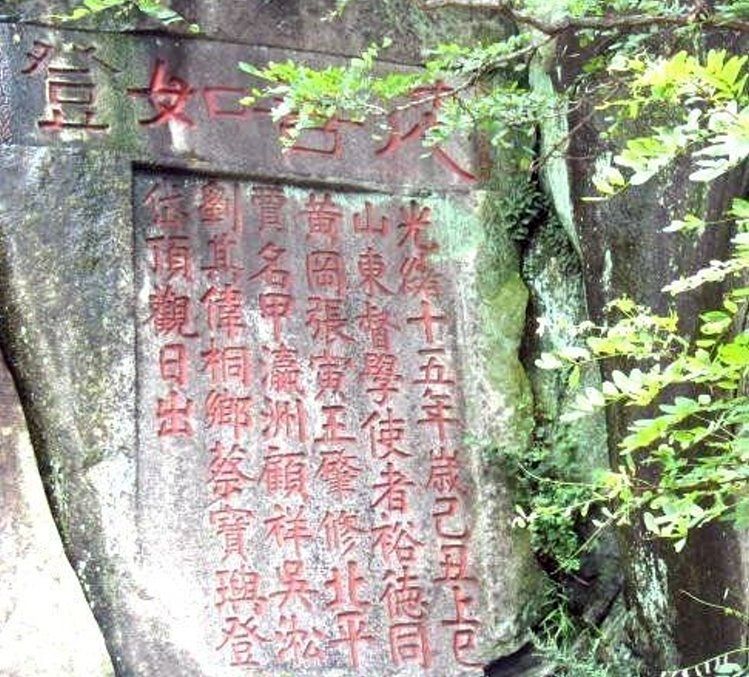 從善如登
光緒十五年歲己丑上巳
山東督學使者裕德同
黃岡張寅王肇修北平
賈名甲瀛洲顧祥吳淞
劉其偉桐鄉蔡寶璵登
岱頂觀日出